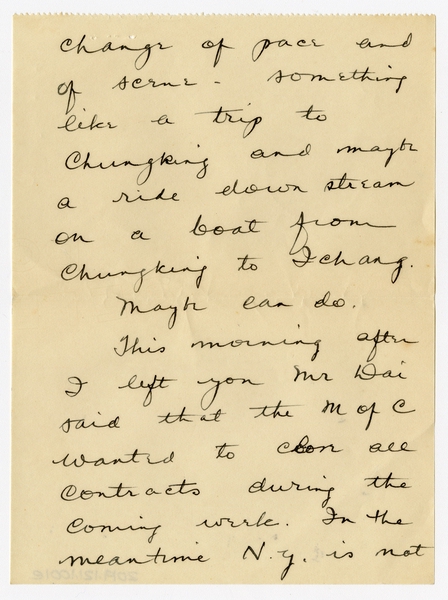 change of pace and
of scene - something
like a trip to
Chungking and maybe
a ride down stream
on a boat from
Chungking to Ichang.
Maybe can do.
This morning after
I left you Mr Dai
said that the M of C
wanted to close all
contracts during the
coming week. In the
meantime N.Y. is not